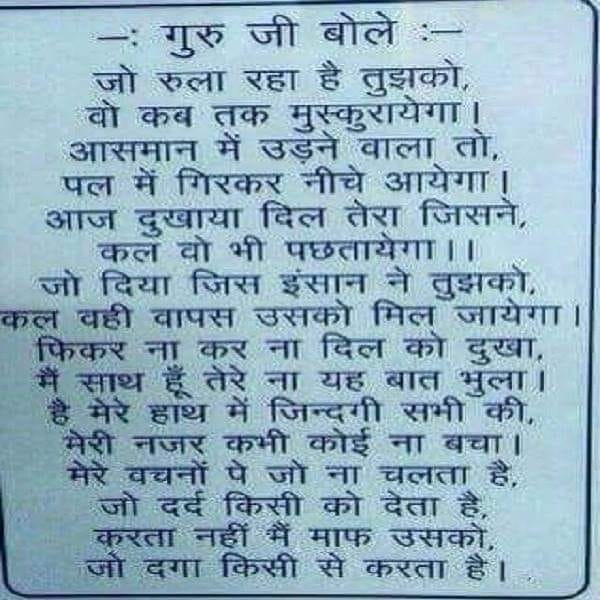 –: गुरु जी बोले :–
जो रुला रहा है तुझको,
वो कब तक मुस्कुरायेगा।
आसमान में उड़ने वाला तो,
पल में गिरकर नीचे आयेगा।
आज दुखाया दिल तेरा जिसने,
कल वो भी पछतायेगा।।
जो दिया जिस इंसान ने तुझको,
कल वही वापस उसको मिल जायेगा।
फिकर ना कर ना दिल को दुखा,
मैं साथ हूँ तेरे ना यह बात भुला।
है मेरे हाथ में जिन्दगी सभी की,
मेरी नजर कभी कोई ना बचा।
मेरे वचनों पे जो ना चलता है,
जो दर्द किसी को देता है,
करता नहीं मैं माफ उसको,
जो दगा किसी से करता है।